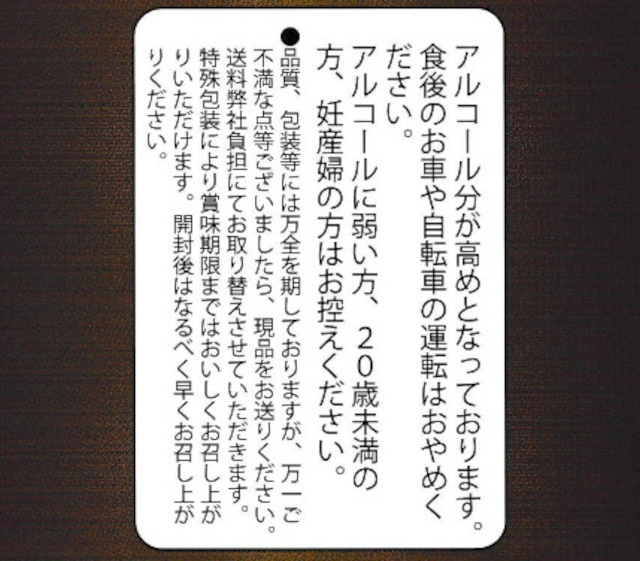 アルコール分が高めとなっております。
食後のお車や自転車の運転はおやめく
ださい。
アルコールに弱い方、２０歳未満の
方、妊産婦の方はお控えください。
●品質、包装等には万全を期しておりますが、万一ご
不満な点等ございましたら、現品をお送りください。
送料弊社負担にてお取り替えさせていただきます。
特殊包装により賞味期限まではおいしくお召し上が
りいただけます。開封後はなるべく早くお召し上が
りください。